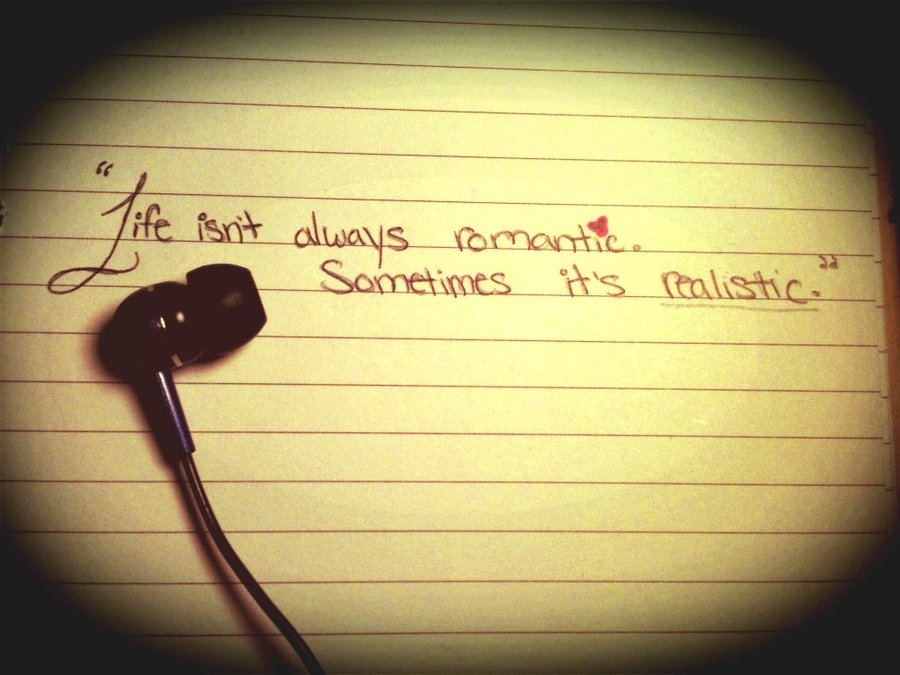 "Life isn't always romantic.
Sometimes it's realistic."